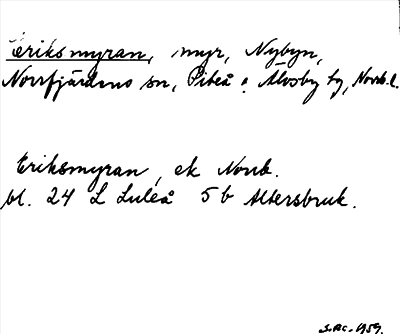 Eriksmyran, myr, Nybyn,
Norrfjärdens sn, Piteå o. Älvsby tg, Norrb. l.
Eriksmyran, ek Norrb.
bl. 24 L Luleå 5b Altersbruk.
1959.